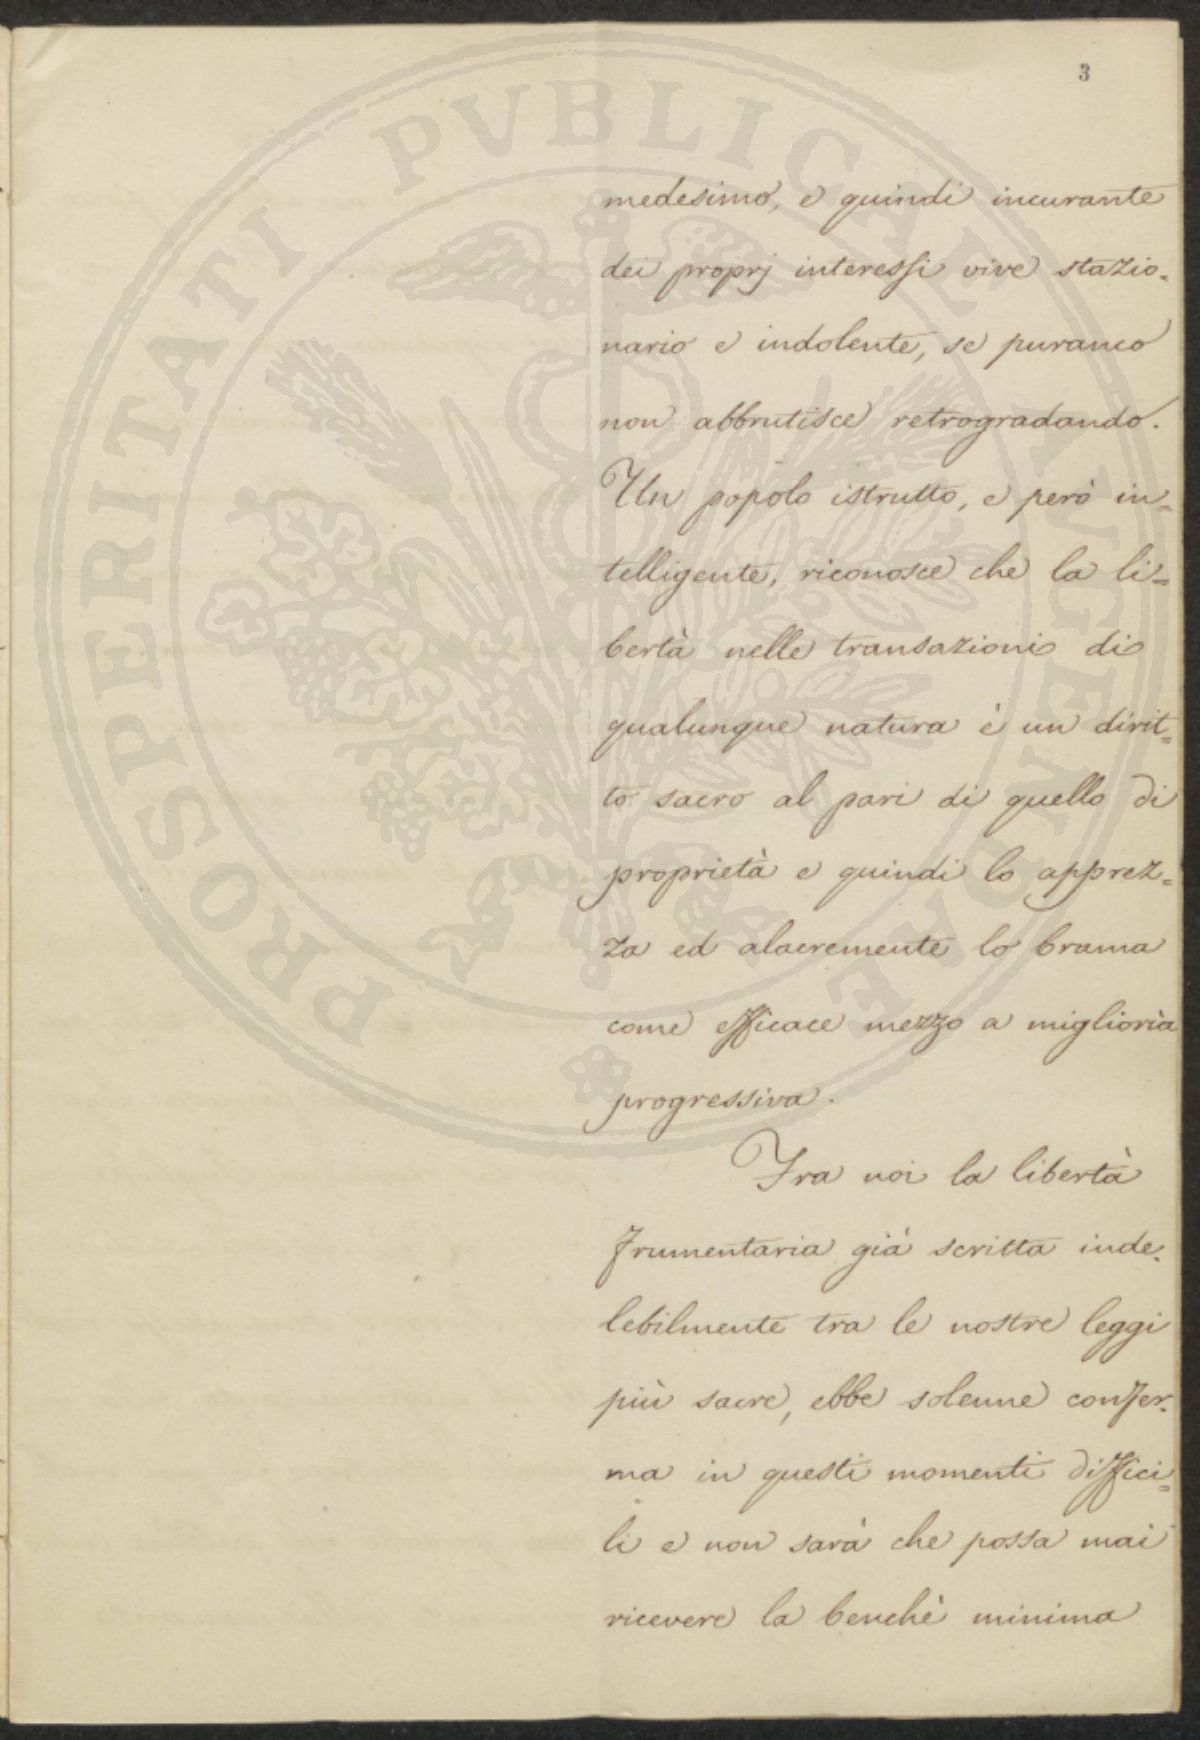 3
medesimo, e quindi incurante
dei proprj interessi vive stazio=
nario e indolente, se puranco
non abbrutisce retrogradando.
Un popolo istrutto, e però in=
telligente, riconosce che la li=
bertà nelle transazioni di
qualunque natura è un dirit=
to sacro al pari di quello di
proprietà e quindi lo apprez=
za ed alacremente lo brama
come efficace mezzo a miglioria
progressiva.
Fra noi la libertà
frumentaria già scritta inde=
lebilmente tra le nostre leggi
più sacre, ebbe solenne confer=
ma in questi momenti diffici=
li e non sarà che possa mai
ricevere la benchè minima
PROSPERITATI PVBLICAE AVGENDAE